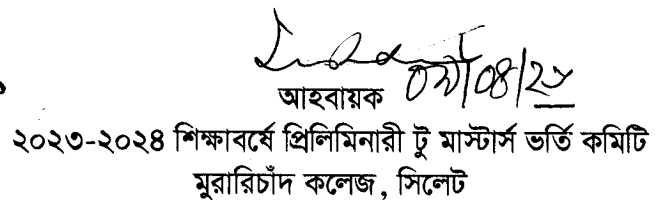 আহবায়ক
২০২৩-২০২৪ শিক্ষাবর্ষে প্রিলিমিনারী টু মাস্টার্স ভর্তি কমিটি
মুরারিচাঁদ কলেজ, সিলেট